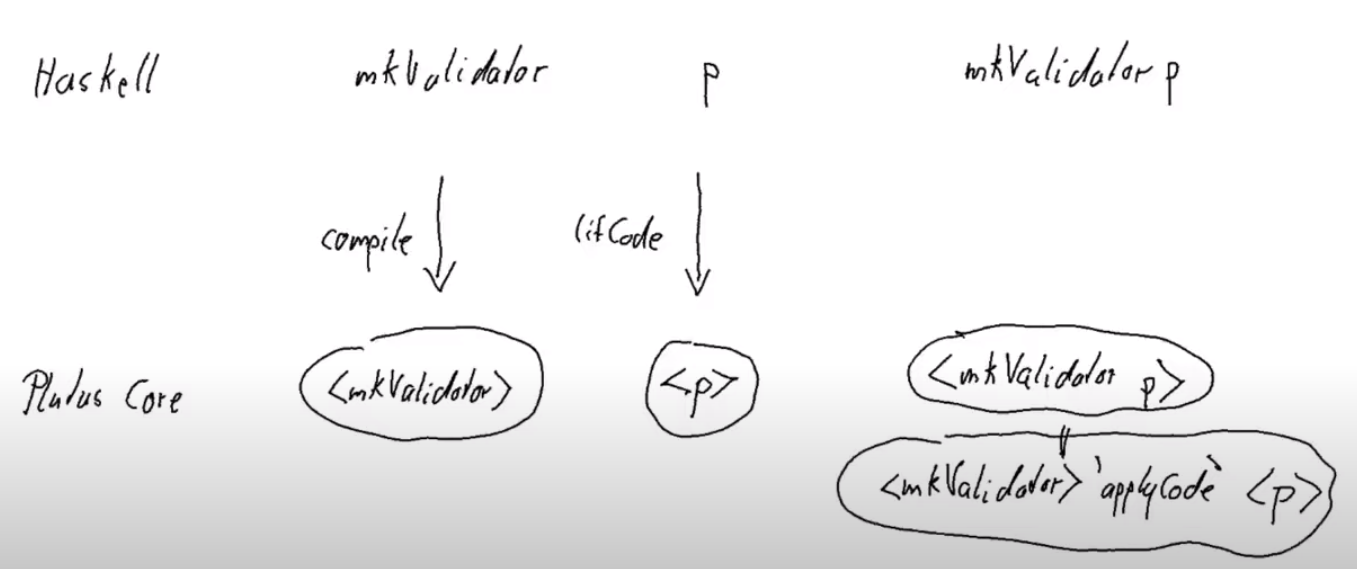 Haskell mkValidator p mkValidator p
compile liftCode
Plutus Core <mkValidator> <p> <mkValidator p>
||
<mkValidator> `applyCode` <p>